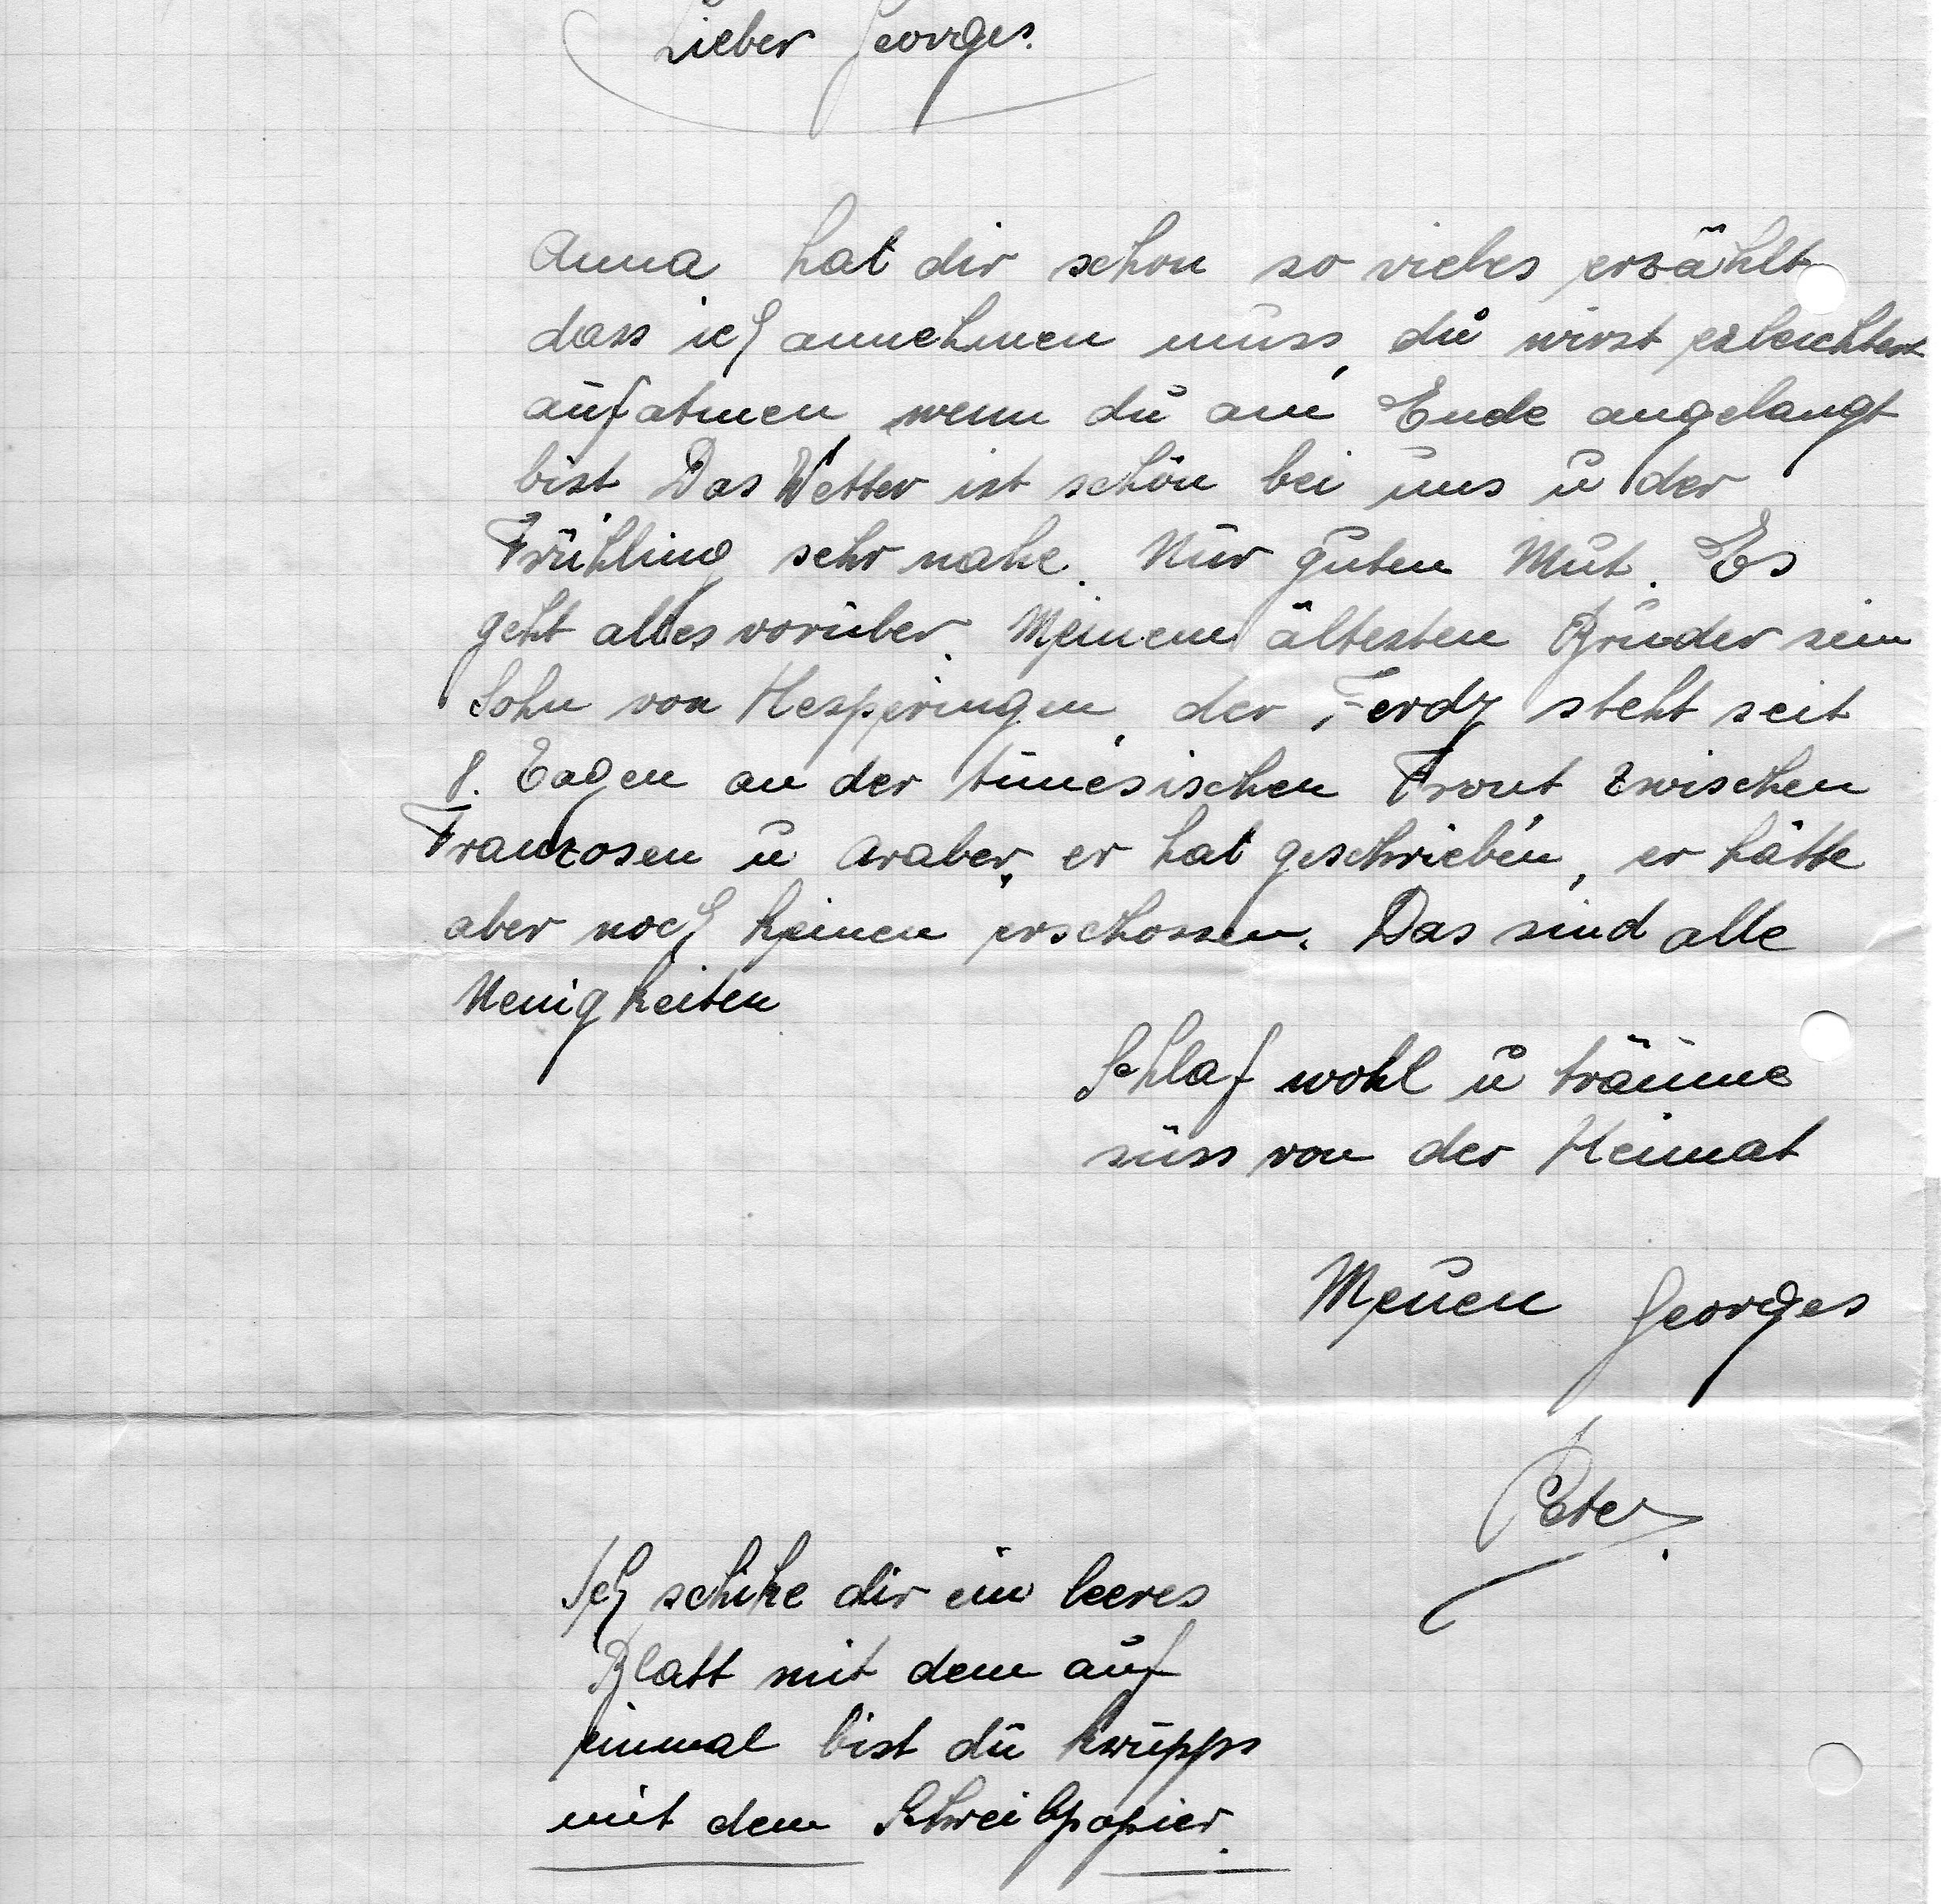 Lieber Georges.
Anna hat dir schon so vieles erzählt
dass ich annehmen muss, du wirst erleichtert
aufatmen, wenn du am Ende angelangt
bist. Das Wetter ist schön bei uns u der
Frühling sehr nahe. Nur guten Mut. Es
geht alles vorüber. Meinem ältesten Bruder sein
Sohn von Hesperingen, der Ferdy steht seit
8. Tagen an der tunesischen Front zwischen
Franzosen u Araber, er hat geschrieben, er hätte
aber noch keinen erschossen. Das sind alle
Neuigkeiten
Schlaf wohl u träume
süss von der Heimat
Georges
Peter.
Ich schike dir ein leeres
Blatt mit dem auf
einmal bist du knupps
mit dem Schreibpapier.